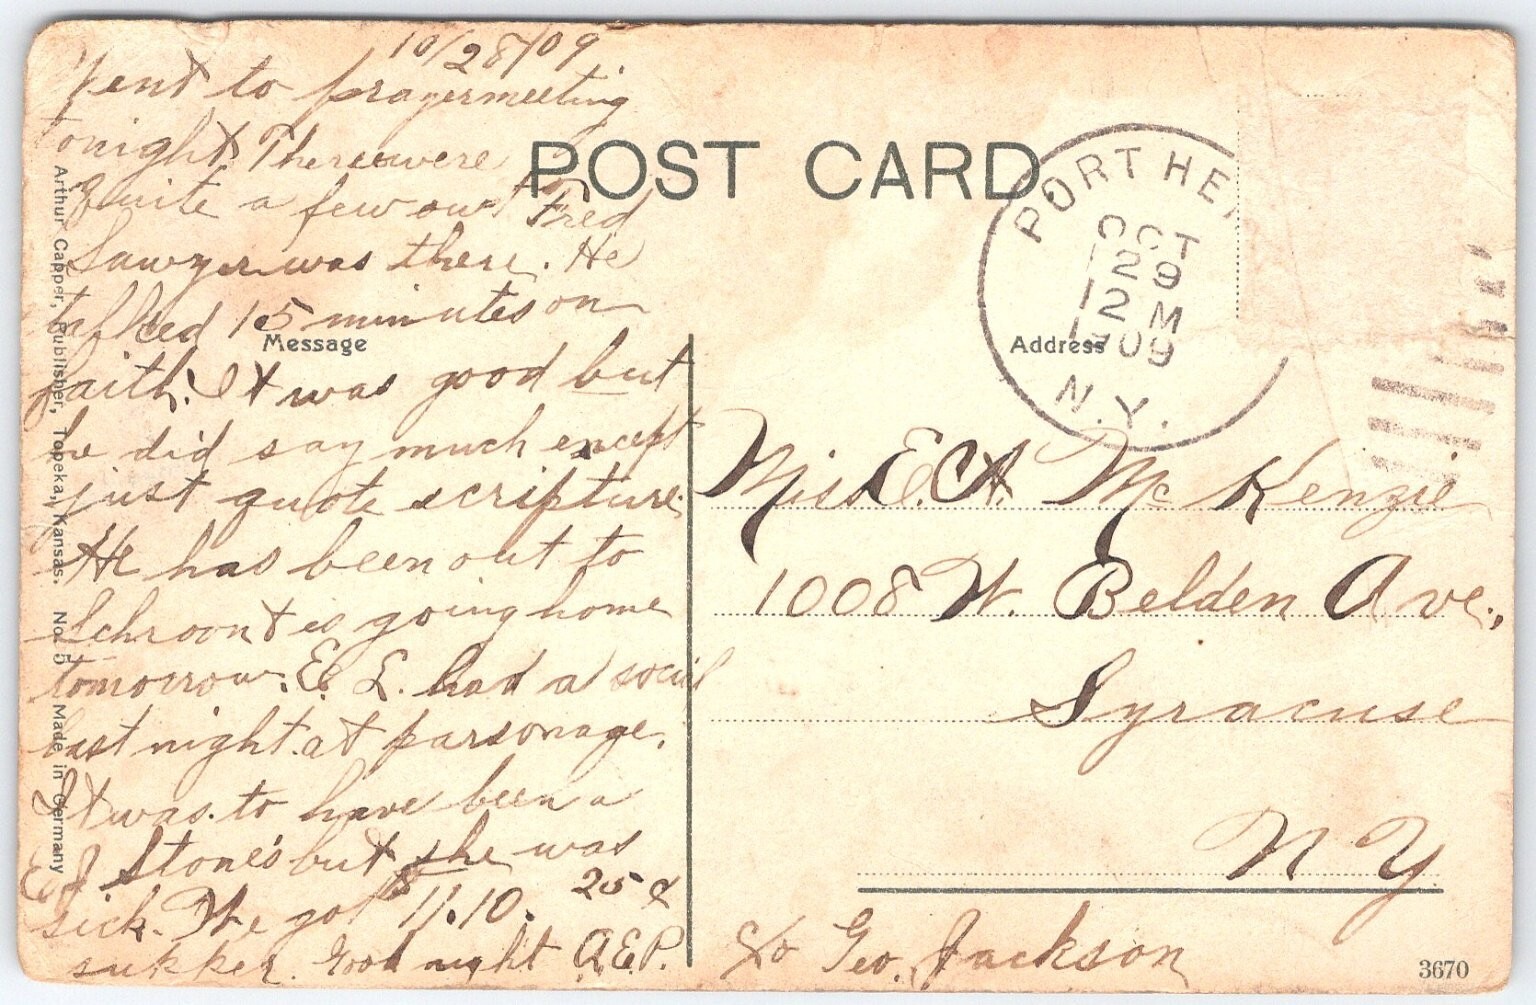 10/28/09
Went to prayermeeting
tonight. There were
quite a few out Fred
Sawyer was there. He
talked 15 minutes on
faith. It was good but
he did say much except
just quote scripture.
He has been out to
Schroon & is going home
tomorrow. E. L. had a social
last night at parsonage.
It was to have been a
E J Stone's but she was
sick. We got $11.10. 25¢
supper. Good night A.E.P.
POST CARD
Message
Address
Arthur Capper, Publisher, Topeka, Kansas. No. 5 Made in Germany
PORT HE
OCT
29
12 M
1909
N.Y.
Miss E. A. McKenzie
1008 W. Belden Ave.,
Syracuse
N Y
c/o Geo. Jackson
3670